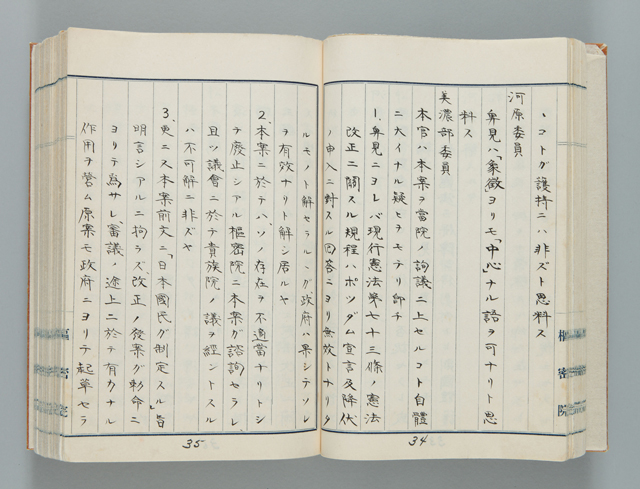 、コトガ護持ニハ非ズト思料ス
河原委員
鼻見ハ「象徴ヨリモ「中心」ナル語ヲ可ナリト思
料ス
美濃部委員
本官ハ本案ヲ當院ノ詢議ニ上セルコト自體
ニ大イナル疑ヒヲモテリ即チ
1、鼻見ニヨレバ現行憲法第七十三條ノ憲法
改正ニ關スル規程ハポツダム宣言及降伏
ノ申入ニ対スル回答ニヨリ無效トナリタ
34
ルモノト解セラルヽガ政府ハ果シテソレ
ヲ有效ナリト解シ居ルヤ
2、本案ニ於テハソノ存在ヲ不適當ナリトシ
テ廢止シアル樞密院ニ本案ガ諮詢セラレ、
且ツ議會ニ於テ貴族院ノ議ヲ經ントスル
ハ不可解ニ非ズヤ
3、更ニス本案前文ニ「日本國民ガ制定スル」旨
明言シアルニ拘ラズ、改正ノ發案ガ勅命ニ
ヨリテ為サレ、審議ノ途上ニ於テ有力ナル
作用ヲ營ム原案モ政府ニヨリテ起草セラ
35
樞密院